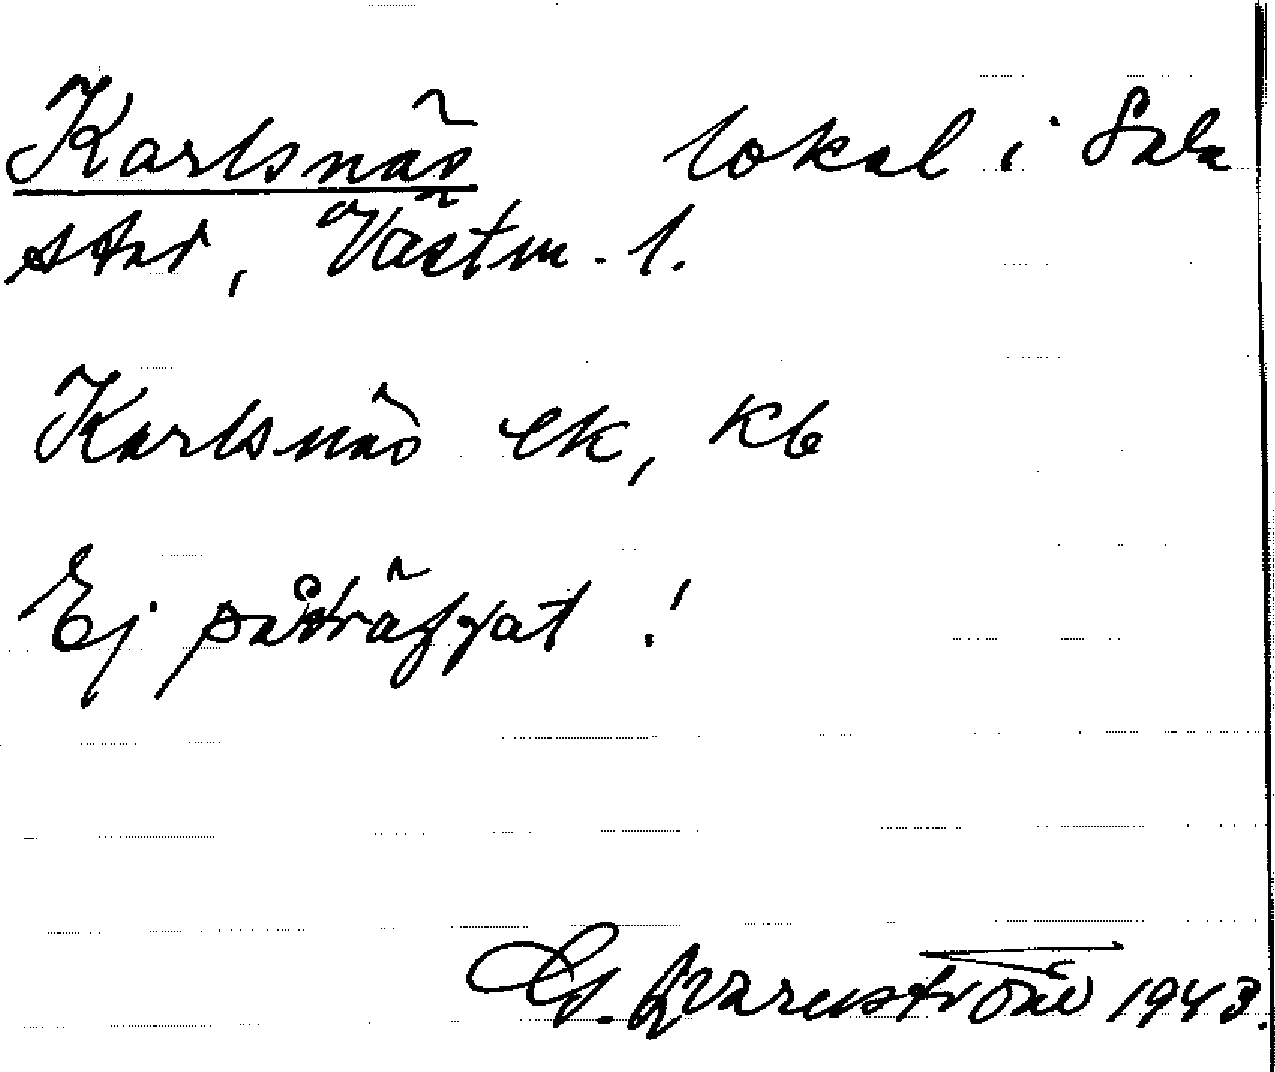 Karlsnäs lokal i Sala
stad, Västm. l.
Karlsnäs ek, kb
Ej påträffat!
G. Qvarnström 1943.